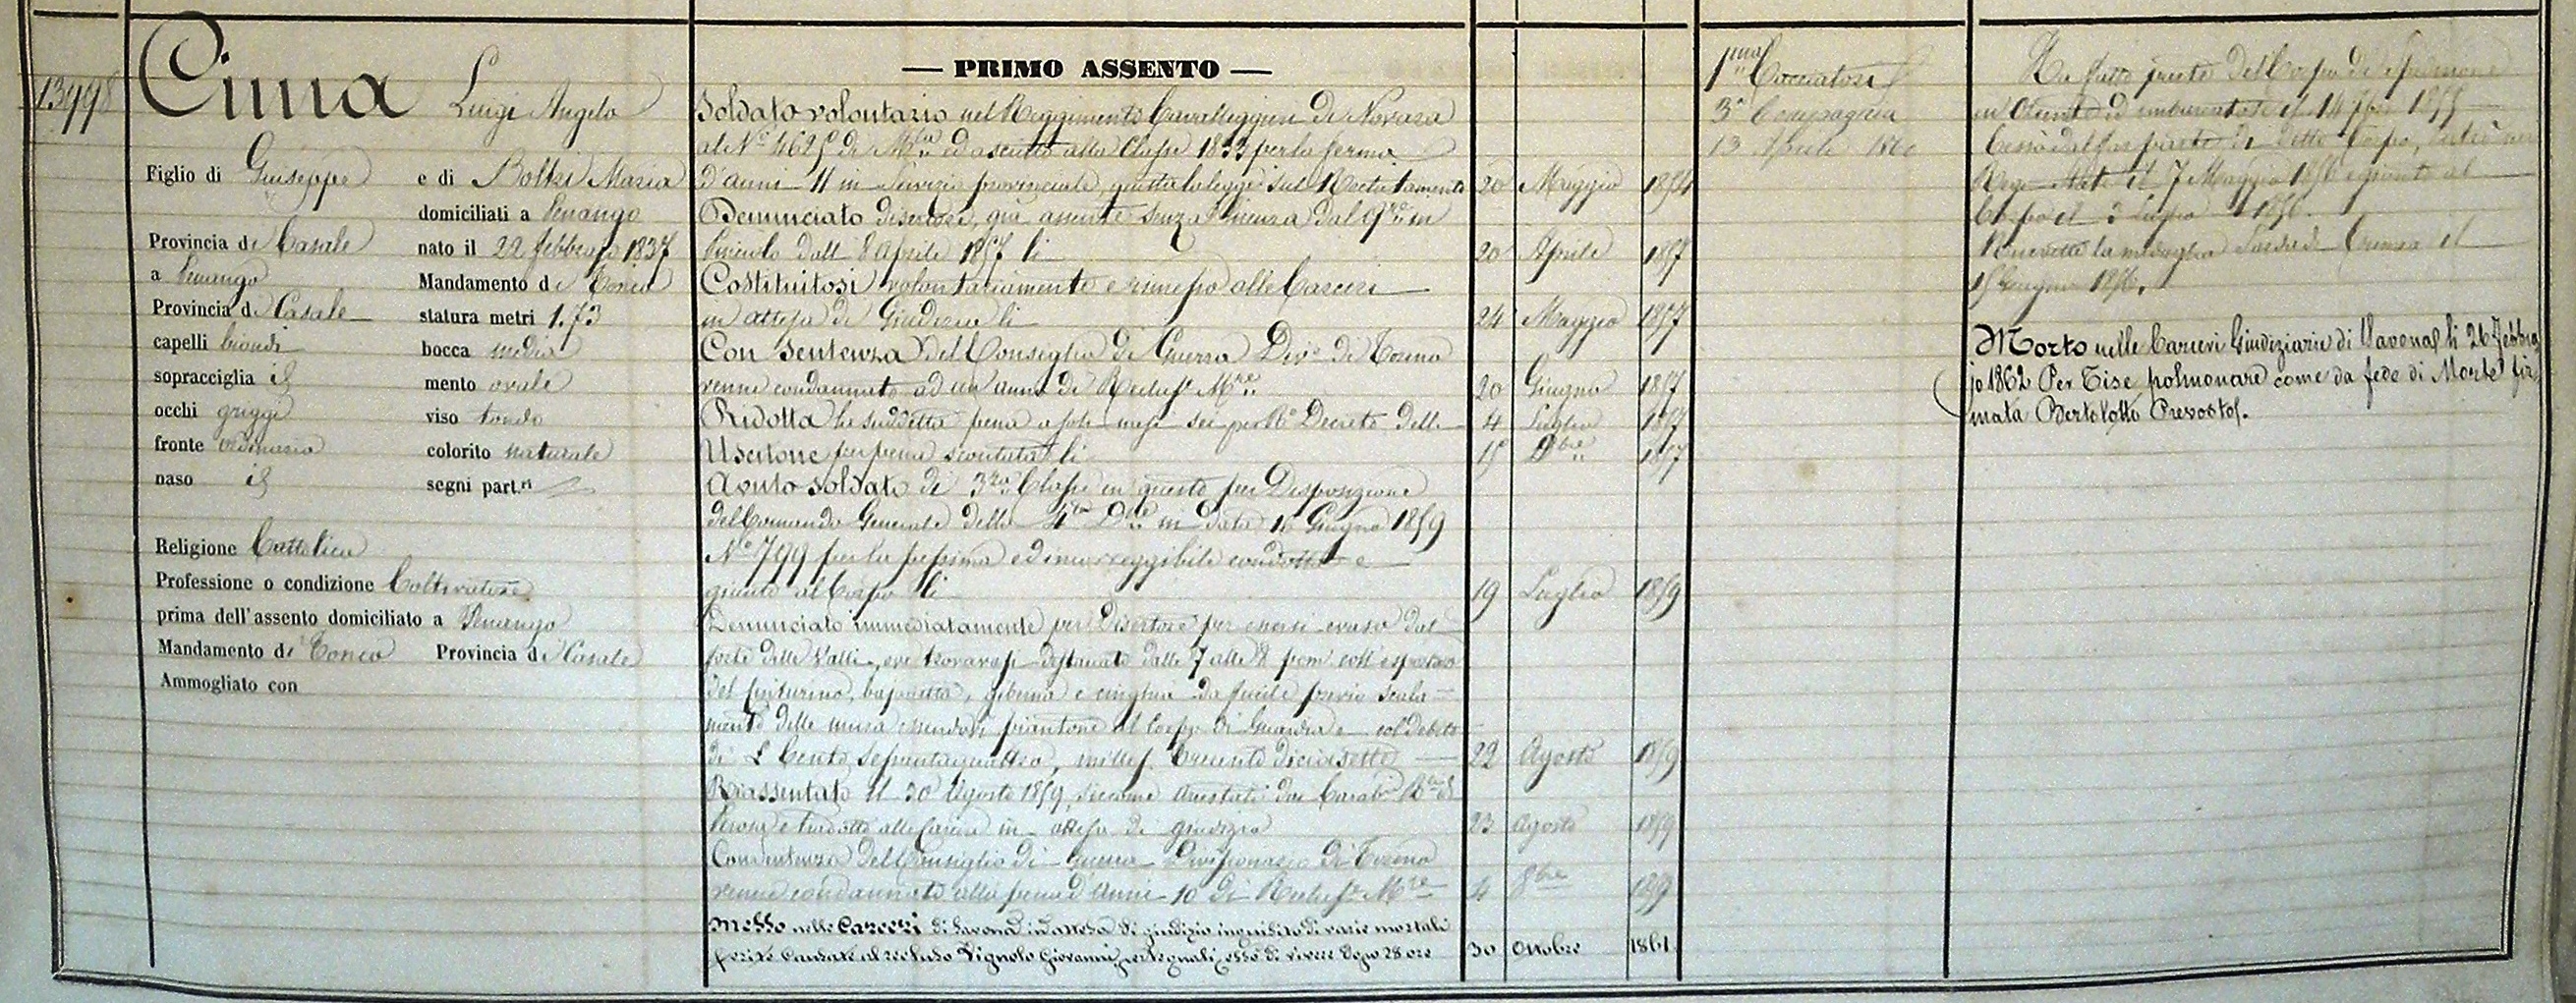 13998
Cima Luigi Angelo
Figlio di Giuseppe e di Boltri Maria
domiciliati a Penango
Provincia di Casale nato il 22 febbraio 1837
a Penango Mandamento di Tonco
Provincia di Casale statura metri 1.73
capelli biondi bocca media
sopracciglia id mento ovale
occhi griggi viso tondo
fronte ordinaria colorito naturale
naso id segni part.ri
Religione Cattolica
Professione o condizione Coltivatore
prima dell'assento domiciliato a Penango
Mandamento di Tonco Provincia di Casale
Ammogliato con
— PRIMO ASSENTO —
Soldato volontario nel Reggimento Cavalleggieri di Novara
al No 4625 di Mla ed ascritto alla Classe 1833 per la ferma
d'anni 11 in servizio provinciale, giusta la legge sul Reclutamento 20 Maggio 1854
Denunciato disertore, già assente senza licenza dal
dall' 8 Aprile 1857 li 20 Aprile 1857
Costituitosi volontariamente e rimesso alle Carceri
in attesa di Giudizio li 24 Maggio 1857
Con sentenza del Consiglio di Guerra Dive di Torino
venne condannato ad un anno di Reclusne Mre 20 Giugno 1857
Ridotta la suddetta pena a soli mesi sei per Ro Decreto delli 4 Luglio 1857
Uscitone per pena scontata li 15 Dbre 1857
Avuto soldato di 3za Classe in questo per Disposizione
del Comando Generale della 4ta Dne in data 16 Giugno 1859
No 799 per la pessima ed incorreggibile condotta e
giunto al Corpo li 19 Luglio 1859
Denunciato immediatamente per Disertore per essersi evaso dal
forte delle Valli, ove trovavasi distaccato dalle 7 alle 8 pom. coll'esportazo
del cinturino, bajonetta, giberna e cinghia da fucile previo scala-
mento delle mura essendovi piantone al Corpo di Guardia e col debito
di L Cento settantaquattro, millesi trecento diciasette 22 Agosto 1859
Riassentato il 30 Agosto 1859, siccome arrestato dai Carabri Rli di
e tradotto alle Carceri in attesa di giudizio 23 Agosto 1859
Con sentenza del Consiglio di Guerra Divisionario di Torino
venne condannato alla pena d'anni 10 di Reclusne Mre 4 8bre 1859
Messo nelle Carceri di Savona in attesa di giudizio inquisito di varie mortali
ferite causate al recluso Vignolo Giovanni, per le quali cessò di vivere dopo 28 ore 30 Ottobre 1861
1ma Cacciatori
3a Compagnia
13 Aprile 1860
Ha fatto parte del Corpo di spedizione
in Oriente ed imbarcatosi il 14 7bre 1855
Cessò dal far parte di detto Corpo, entrò nei
Regi Stati il 7 Maggio 1856 e giunto al
Corpo il 3 Luglio 1856.
Ricevette la medaglia Sarda di Crimea il
15 Giugno 1856.
Morto nelle Carceri Giudiziarie di Savona li 26 Febbra-
jo 1862 Per Tise polmonare come da fede di Morte fir-
mata Bertolotto Prevosto.